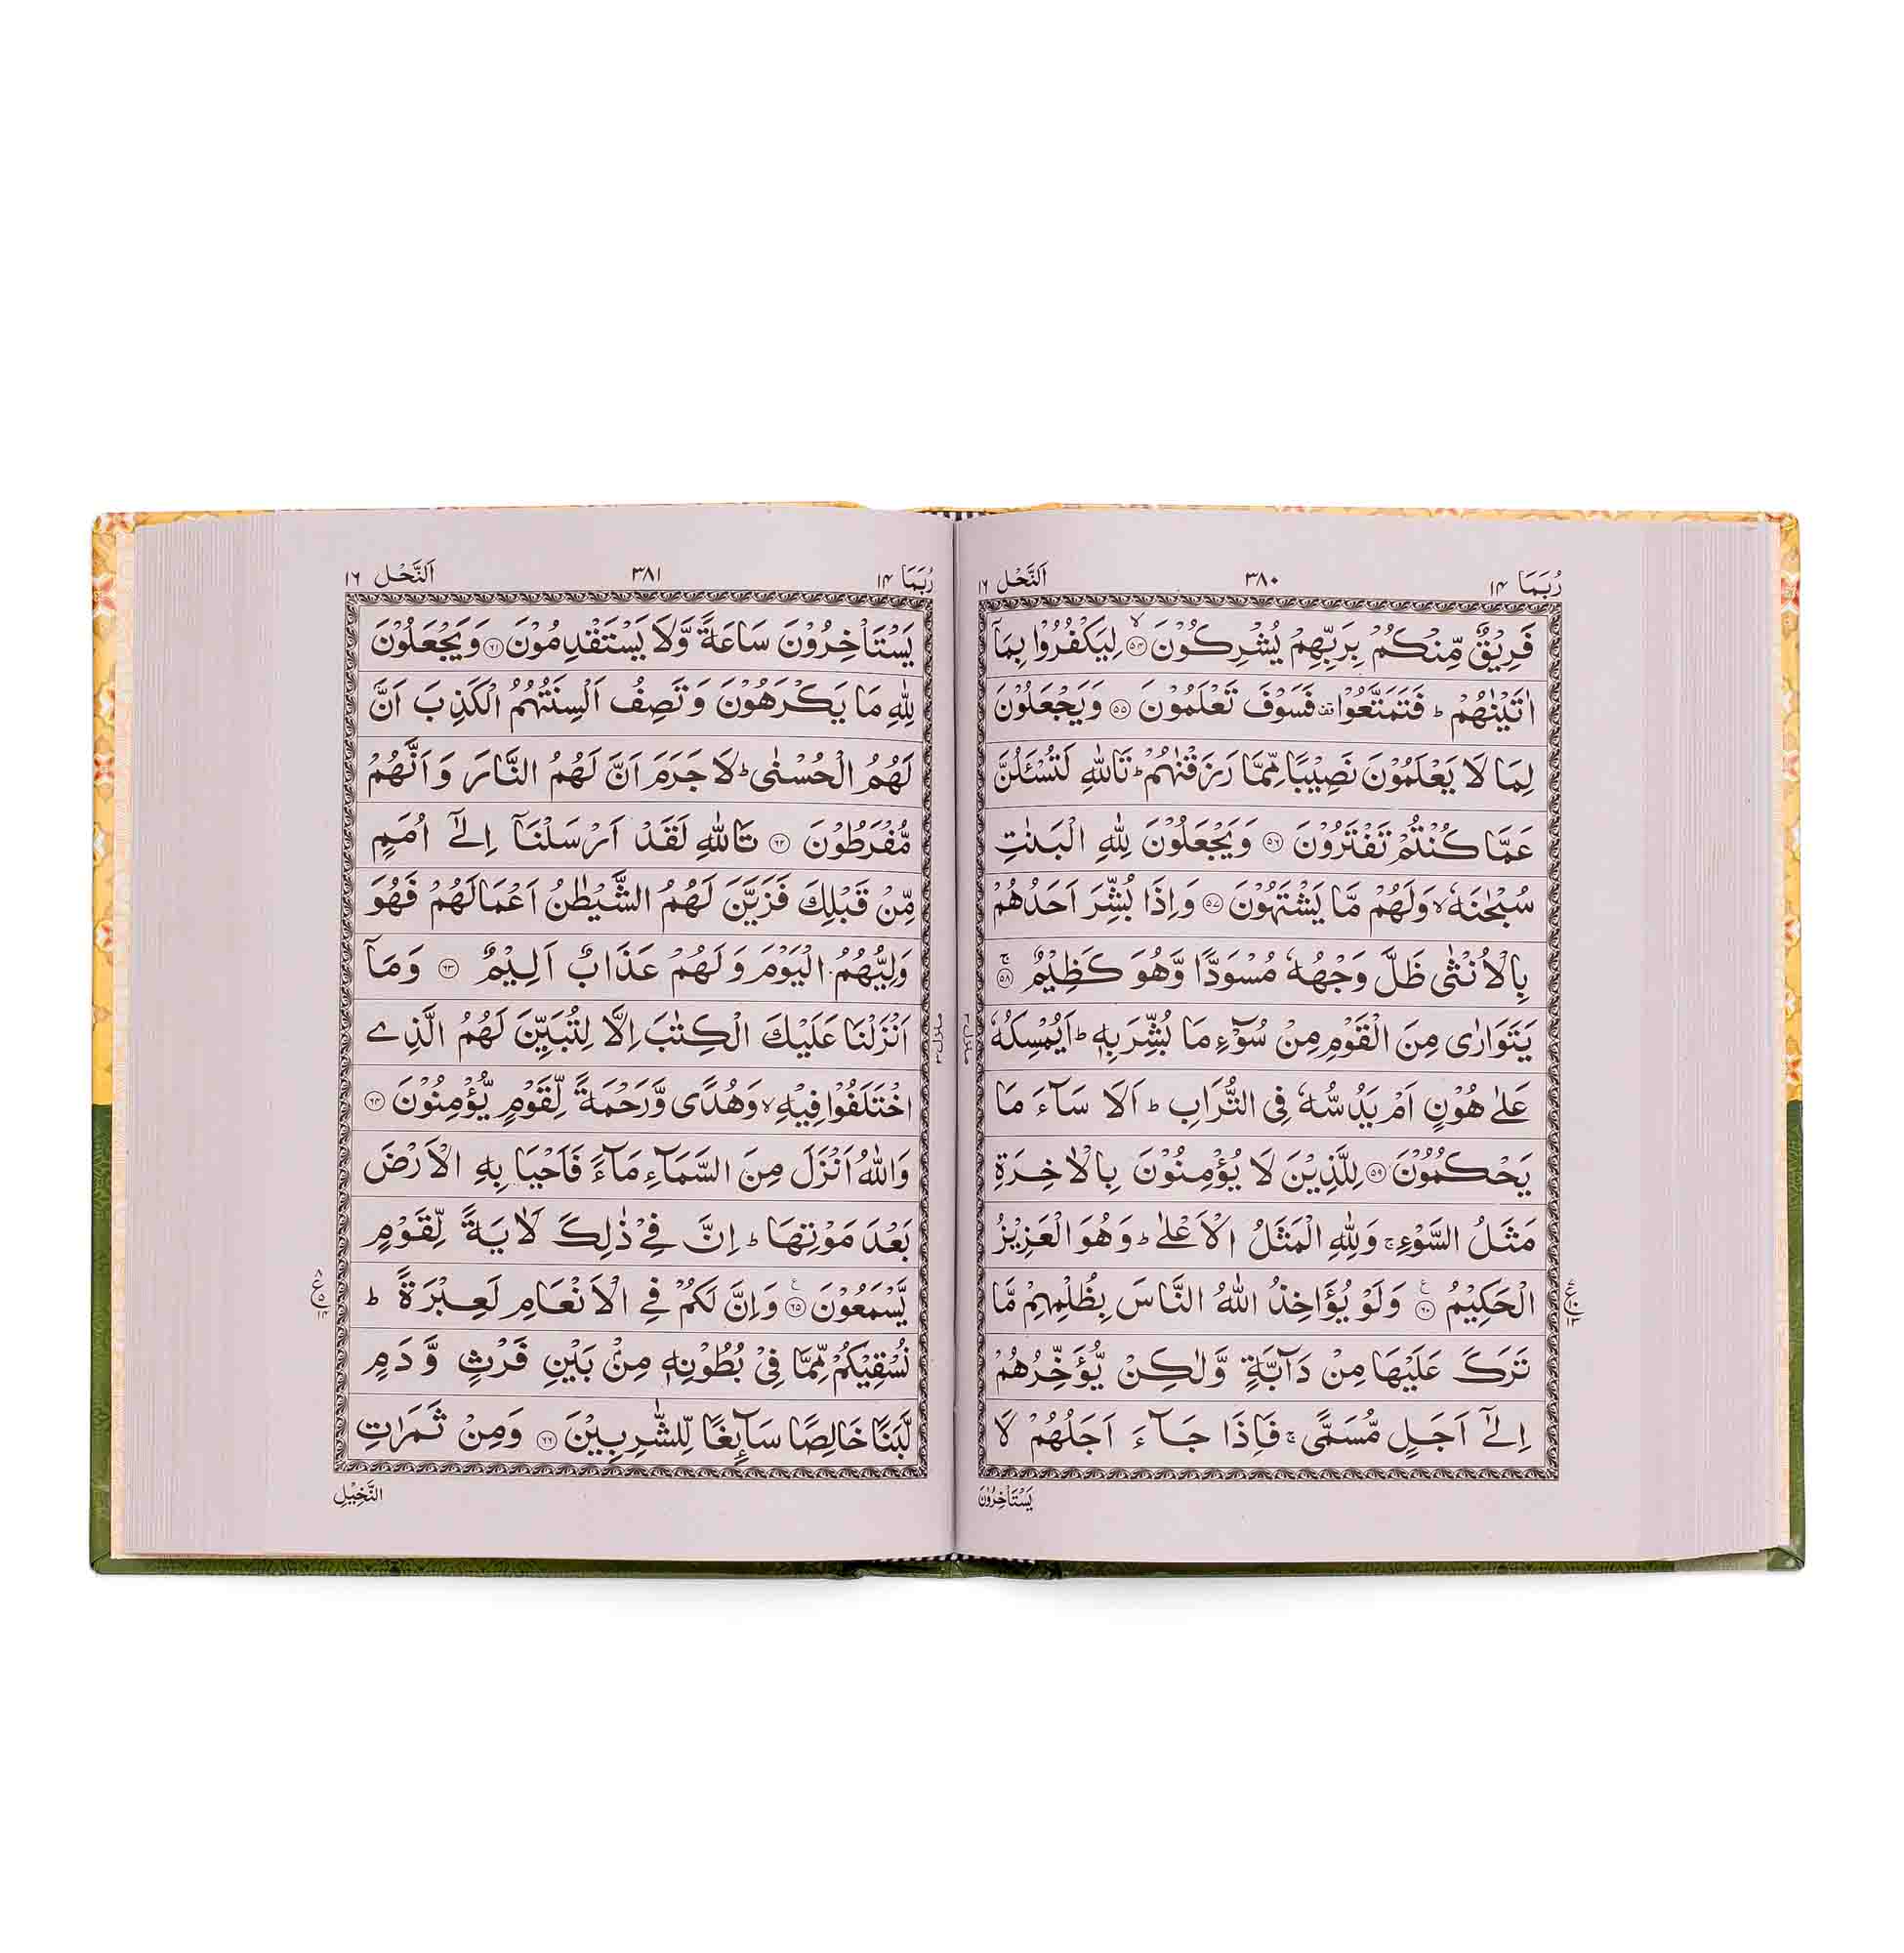 رُبَمَا ۱۴
۳۸۰
اَلنَّحْل ۱۶
فَرِيْقٌ مِّنْكُمْ بِرَبِّهِمْ يُشْرِكُوْنَ ۙ﴿۵۴﴾ لِيَكْفُرُوْا بِمَآ
اٰتَيْنٰهُمْ ؕ فَتَمَتَّعُوْا ۟ فَسَوْفَ تَعْلَمُوْنَ ﴿۵۵﴾ وَيَجْعَلُوْنَ
لِمَا لَا يَعْلَمُوْنَ نَصِيْبًا مِّمَّا رَزَقْنٰهُمْ ؕ تَاللّٰهِ لَتُسْـَٔلُنَّ
عَمَّا كُنْتُمْ تَفْتَرُوْنَ ﴿۵۶﴾ وَيَجْعَلُوْنَ لِلّٰهِ الْبَنٰتِ
سُبْحٰنَهٗ ۙ وَلَهُمْ مَّا يَشْتَهُوْنَ ﴿۵۷﴾ وَاِذَا بُشِّرَ اَحَدُهُمْ
بِالْاُنْثٰى ظَلَّ وَجْهُهٗ مُسْوَدًّا وَّهُوَ كَظِيْمٌ ۚ﴿۵۸﴾
يَتَوَارٰى مِنَ الْقَوْمِ مِنْ سُوْٓءِ مَا بُشِّرَ بِهٖ ؕ اَيُمْسِكُهٗ
عَلٰى هُوْنٍ اَمْ يَدُسُّهٗ فِى التُّرَابِ ؕ اَلَا سَآءَ مَا
يَحْكُمُوْنَ ﴿۵۹﴾ لِلَّذِيْنَ لَا يُؤْمِنُوْنَ بِالْاٰخِرَةِ
مَثَلُ السَّوْءِ ۚ وَلِلّٰهِ الْمَثَلُ الْاَعْلٰى ؕ وَهُوَ الْعَزِيْزُ
الْحَكِيْمُ ﴿۶۰﴾ وَلَوْ يُؤَاخِذُ اللّٰهُ النَّاسَ بِظُلْمِهِمْ مَّا
تَرَكَ عَلَيْهَا مِنْ دَآبَّةٍ وَّلٰكِنْ يُّؤَخِّرُهُمْ
اِلٰٓى اَجَلٍ مُّسَمًّى ۚ فَاِذَا جَآءَ اَجَلُهُمْ لَا
يَسْتَاْخِرُوْنَ
رُبَمَا ۱۴
۳۸۱
اَلنَّحْل ۱۶
يَسْتَاْخِرُوْنَ سَاعَةً وَّلَا يَسْتَقْدِمُوْنَ ﴿۶۱﴾ وَيَجْعَلُوْنَ
لِلّٰهِ مَا يَكْرَهُوْنَ وَتَصِفُ اَلْسِنَتُهُمُ الْكَذِبَ اَنَّ
لَهُمُ الْحُسْنٰى ؕ لَا جَرَمَ اَنَّ لَهُمُ النَّارَ وَاَنَّهُمْ
مُّفْرَطُوْنَ ﴿۶۲﴾ تَاللّٰهِ لَقَدْ اَرْسَلْنَآ اِلٰٓى اُمَمٍ
مِّنْ قَبْلِكَ فَزَيَّنَ لَهُمُ الشَّيْطٰنُ اَعْمَالَهُمْ فَهُوَ
وَلِيُّهُمُ الْيَوْمَ وَلَهُمْ عَذَابٌ اَلِيْمٌ ﴿۶۳﴾ وَمَآ
اَنْزَلْنَا عَلَيْكَ الْكِتٰبَ اِلَّا لِتُبَيِّنَ لَهُمُ الَّذِى
اخْتَلَفُوْا فِيْهِ ۙ وَهُدًى وَّرَحْمَةً لِّقَوْمٍ يُّؤْمِنُوْنَ ﴿۶۴﴾
وَاللّٰهُ اَنْزَلَ مِنَ السَّمَآءِ مَآءً فَاَحْيَا بِهِ الْاَرْضَ
بَعْدَ مَوْتِهَا ؕ اِنَّ فِيْ ذٰلِكَ لَاٰيَةً لِّقَوْمٍ
يَّسْمَعُوْنَ ﴿۶۵﴾ وَاِنَّ لَكُمْ فِى الْاَنْعَامِ لَعِبْرَةً ؕ
نُسْقِيْكُمْ مِّمَّا فِيْ بُطُوْنِهٖ مِنْۢ بَيْنِ فَرْثٍ وَّدَمٍ
لَّبَنًا خَالِصًا سَآىِٕغًا لِّلشّٰرِبِيْنَ ﴿۶۶﴾ وَمِنْ ثَمَرٰتِ
النَّخِيْلِ